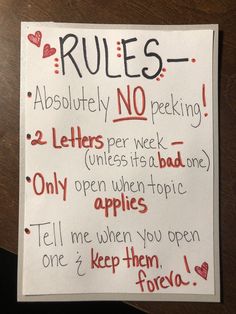 RULES—
Absolutely NO peeking!
2 Letters per week—
(unless its a bad one)
Only open when topic
applies
Tell me when you open
one & keep them,
foreva!